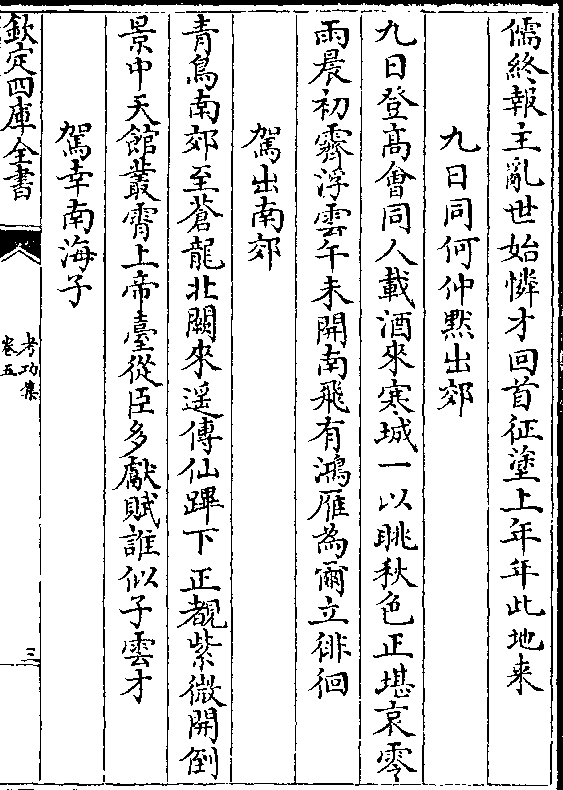 儒終報主亂世始憐才回首征塗上年年此地來
九日同何仲黙出郊
九日登髙㑹同人載酒來寒城一以眺秋色正堪哀零
雨晨初霽浮雲午未開南飛有鴻雁為爾立徘徊
駕出南郊
青鳥南郊至蒼龍北闕來遥傳仙蹕下正覩紫微開倒
景中天館叢霄上帝臺從臣多獻賦誰似子雲才
駕幸南海子
欽定四庫全書
考功集
卷五
三